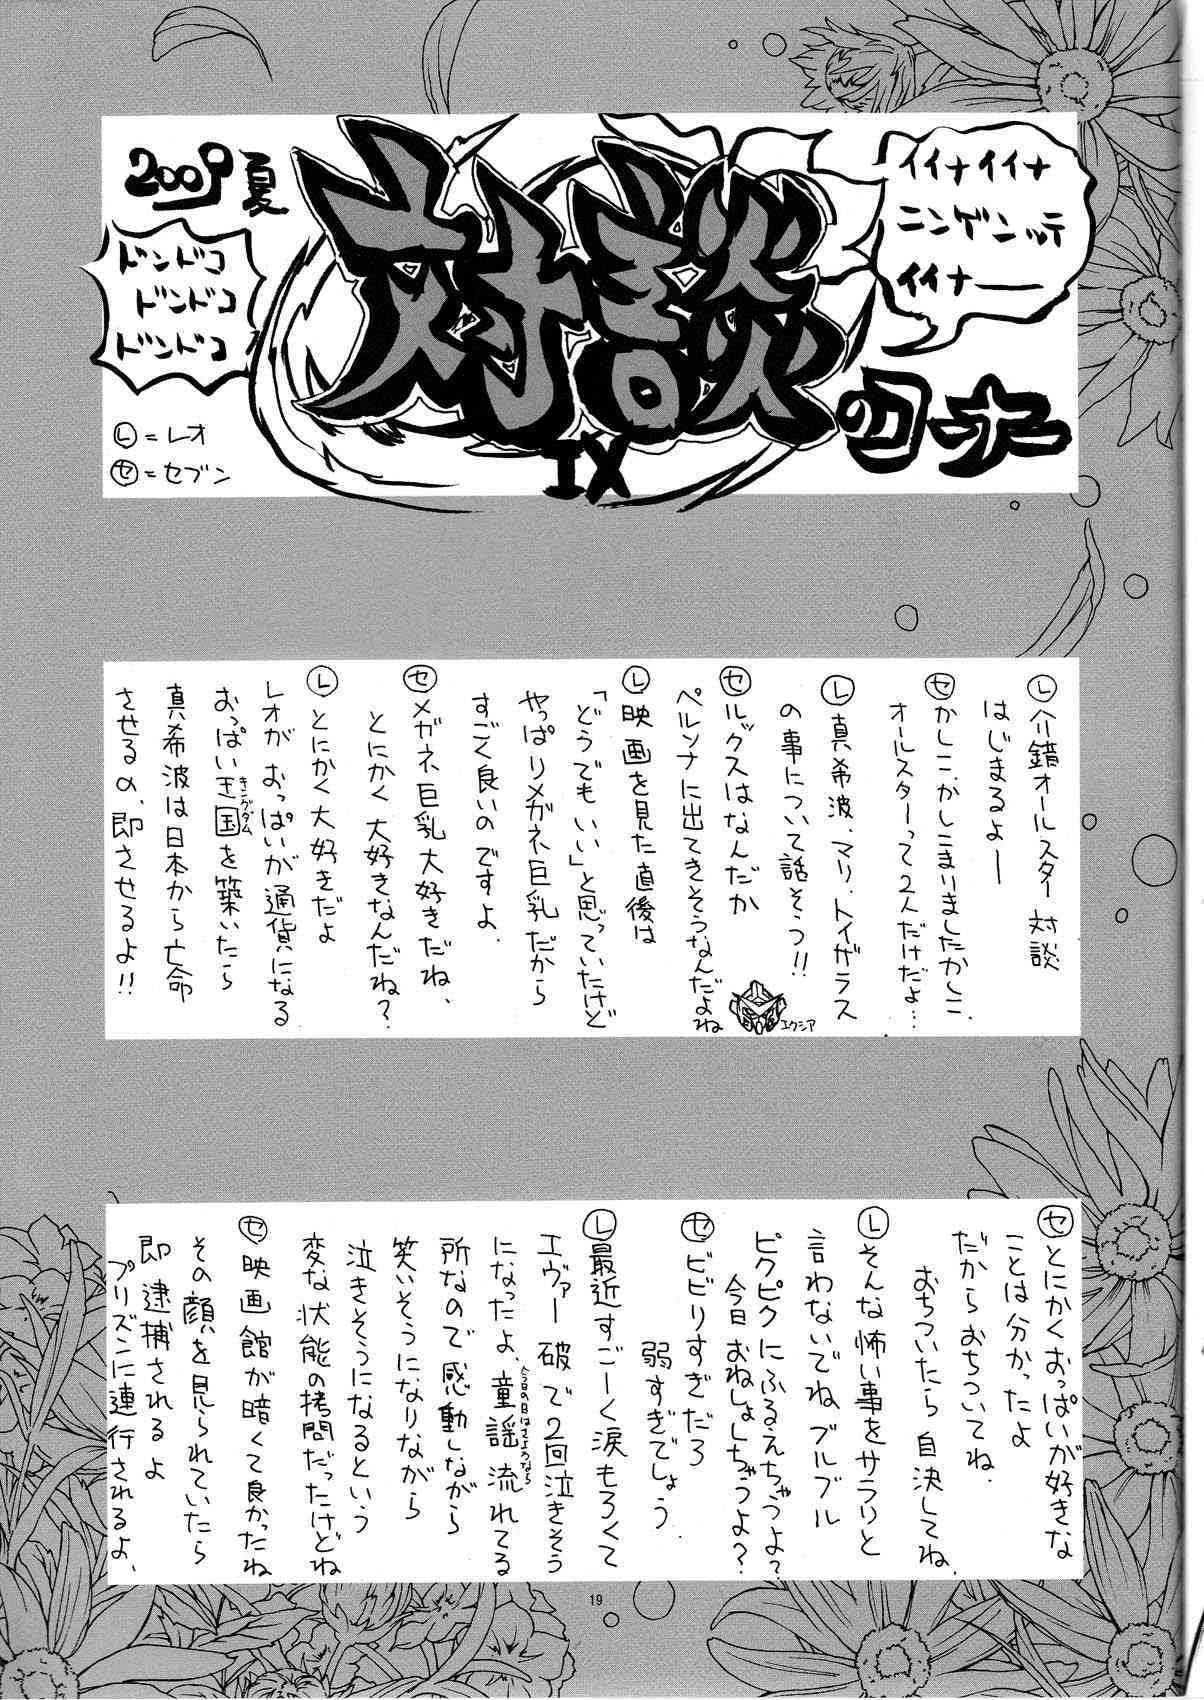 2009夏
対談
IX
のコーナー
イイナイイナ
ニンゲンッテ
イイナー
ドンドコ
ドンドコ
ドンドコ
Ⓛ=レオ
㋝=セブン
Ⓛ介錯オールスター対談
はじまるよー
㋝かしこ、かしこまりましたかしこ、
オールスターって2人だけだよ…
Ⓛ真希波、マリ、トイザラス
の事について話そう!!
㋝ルックスはなんだか
ペルソナに出てきそうなんだよね
エクシア
Ⓛ映画を見た直後は
「どうでもいい」と思っていたけど
やっぱりメガネ巨乳だから
すごく良いのですよ
㋝メガネ巨乳大好きだね、
とにかく大好きなんだね?
Ⓛとにかく大好きだよ
レオがおっぱいが通貨になる
おっぱい王国を築いたら
キングダム
真希波は日本から亡命
させるの、即させるよ!!
㋝とにかくおっぱいが好きな
ことは分かったよ
だからおちついてね、
おちついたら自決してね、
Ⓛそんな怖い事をサラリと
言わないでね ブルブル
ピクピクにふるえちゃうよ?
今日おねしょしちゃうよ?
㋝ビビりすぎだろ
弱すぎでしょう
Ⓛ最近すごーく涙もろくて
エヴァー破で2回泣きそう
になったよ、童謡流れてる
今日の日はさようなら
所なので感動しながら
笑いそうになりながら
泣きそうになるという
変な状態の拷問だったけどね
㋝映画館が暗くて良かったね
その顔を見られていたら
即逮捕されるよ
プリズンに連行されるよ、
19